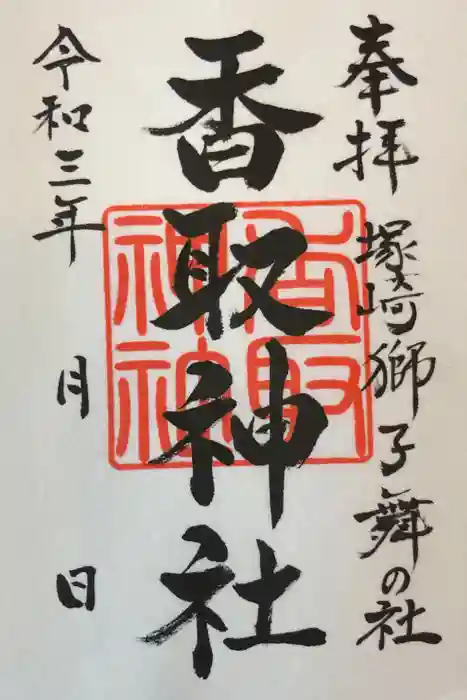 奉拝
塚崎獅子舞の社
香取神社
香取
神社
令和三年 月 日